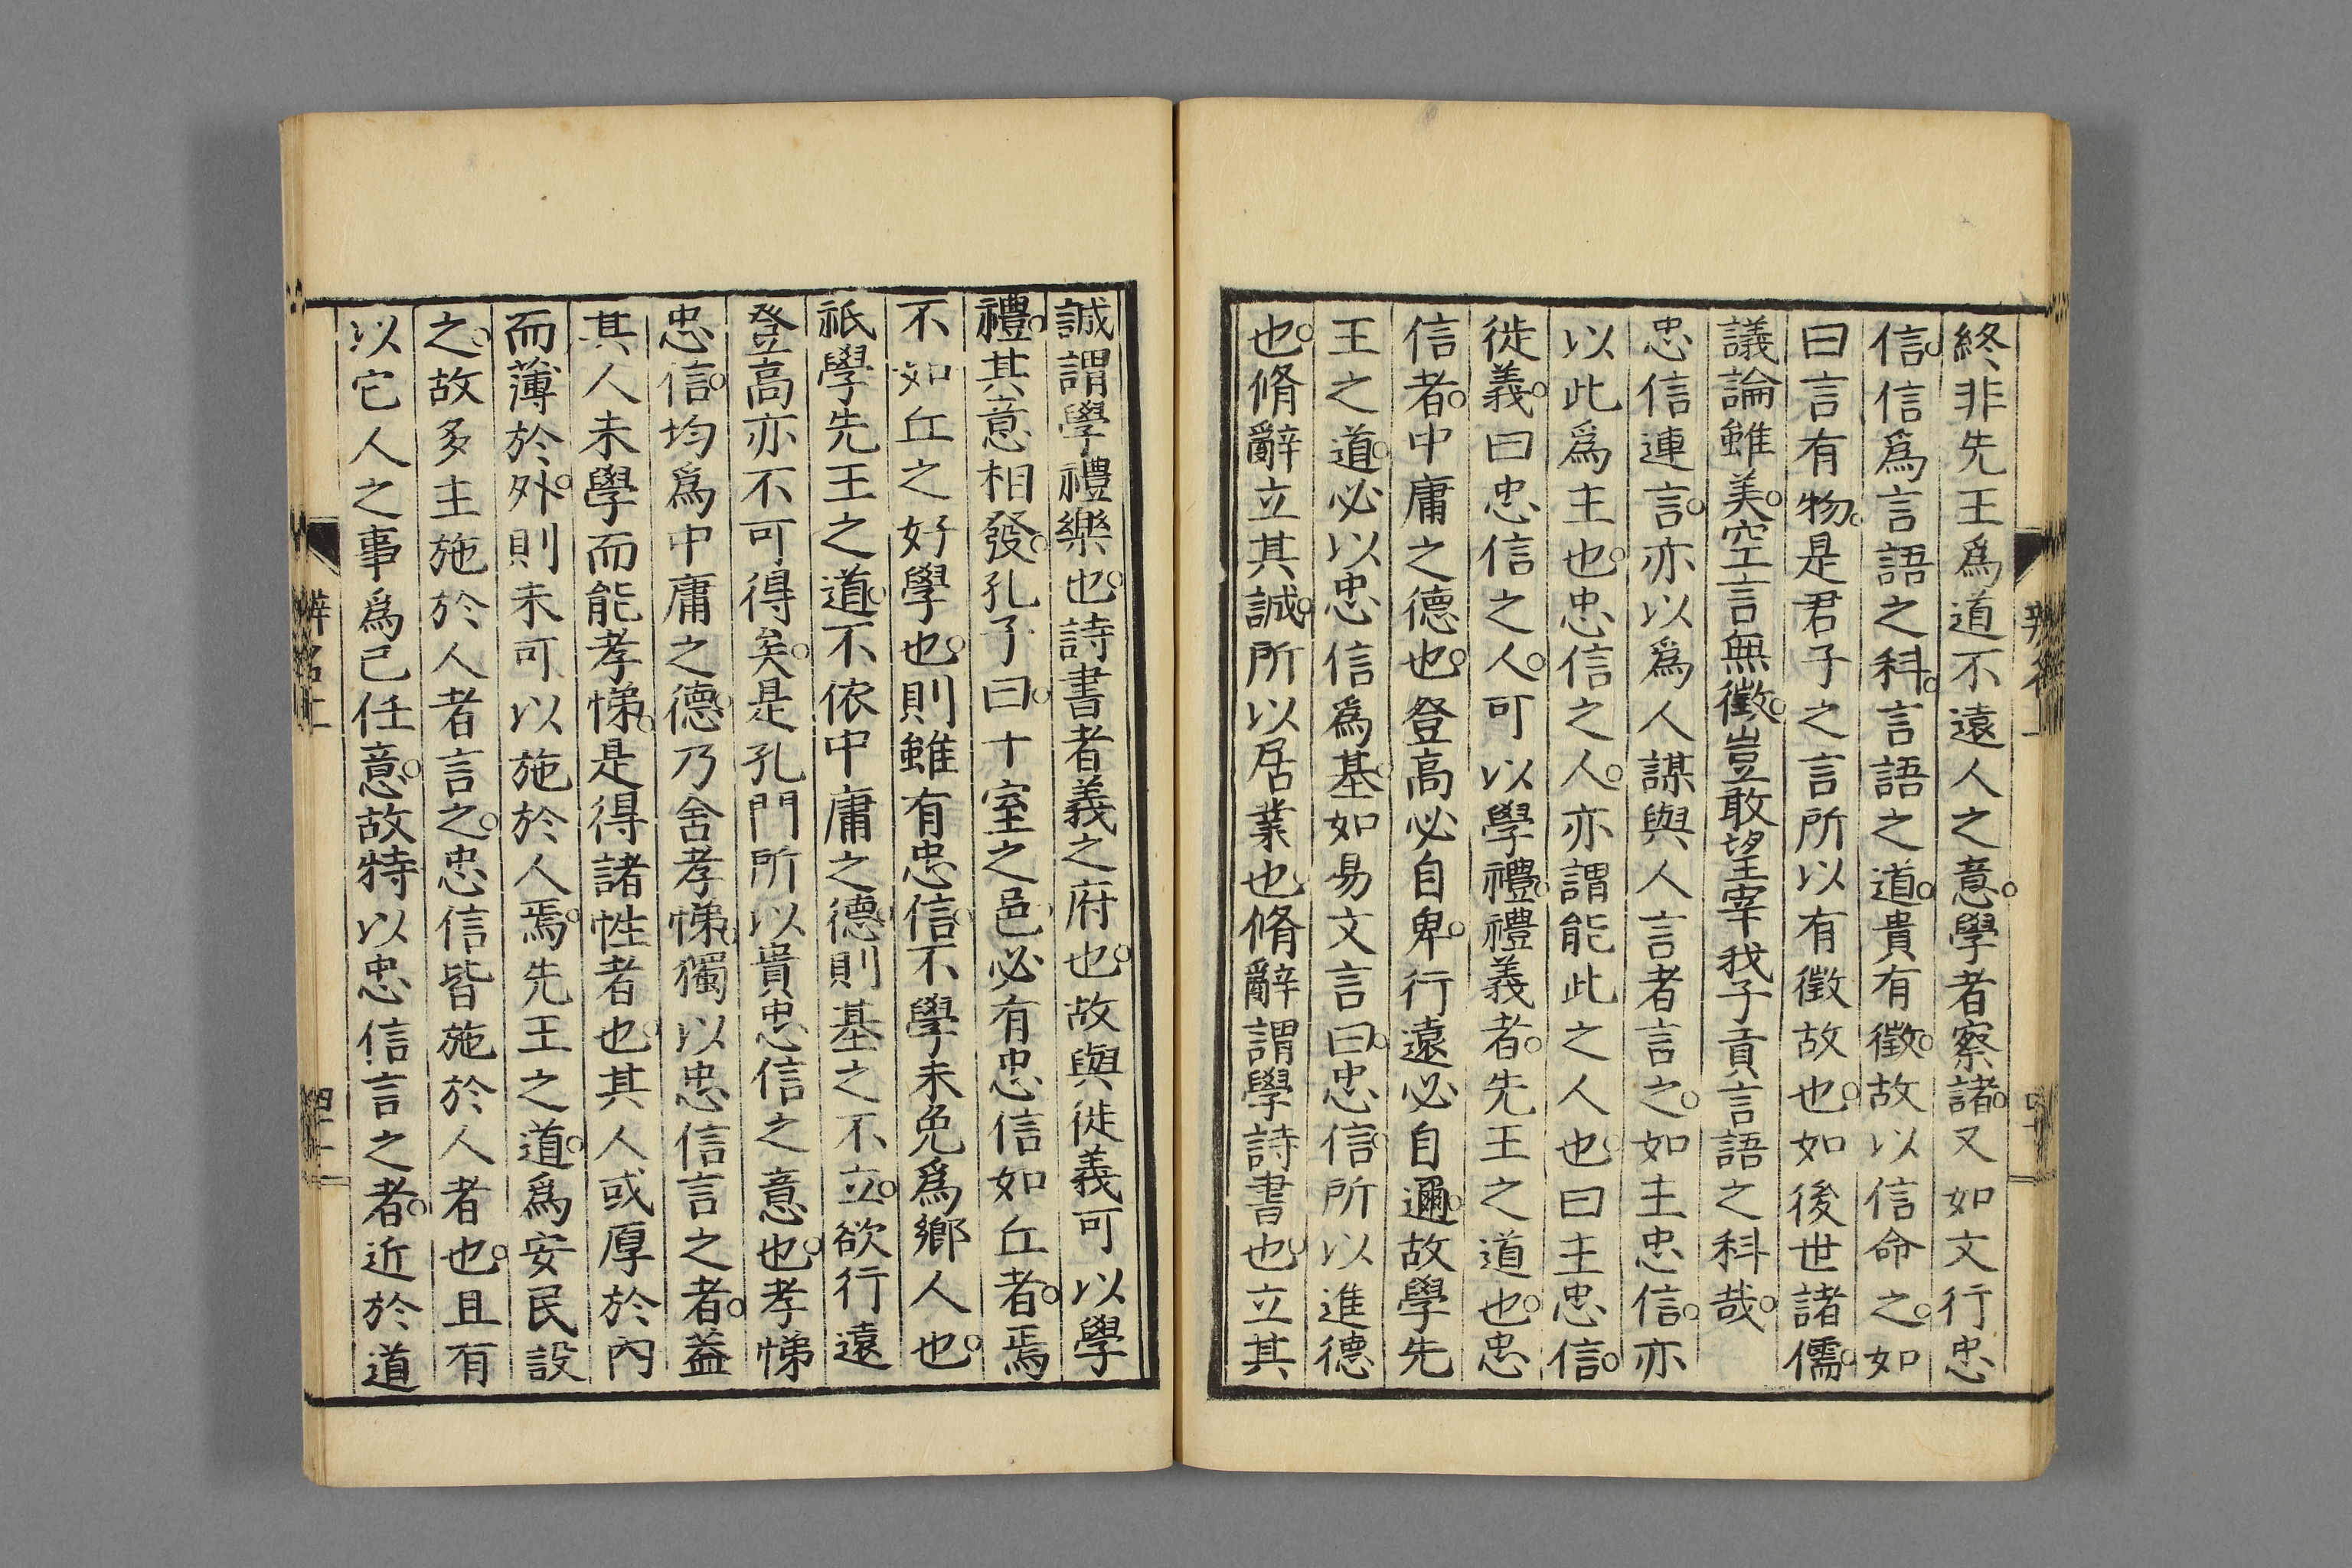 終非先王爲道不遠人之意。學者察諸。又如文行忠
信。信爲言語之科。言語之道。貴有徵。故以信命之。如
曰言有物。是君子之言所以有徵故也。如後世諸儒。
議論雖美。空言無徵。豈敢望宰我子貢言語之科哉。
忠信連言。亦以爲人謀與人言者言之。如主忠信。亦
以此爲主也。忠信之人。亦謂能此之人也。曰主忠信。
徙義。曰忠信之人。可以學禮。禮義者。先王之道也。忠
信者。中庸之德也。登高必自卑。行遠必自邇。故學先
王之道。必以忠信爲基。如易文言曰。忠信。所以進德
也。脩辭立其誠。所以居業也。脩辭謂學詩書也。立其
誠謂學禮樂也。詩書者義之府也。故與徙義可以學
禮。其意相發。孔子曰。十室之邑。必有忠信如丘者。焉
不如丘之好學也。則雖有忠信。不學未免爲鄉人也。
祇學先王之道。不依中庸之德。則基之不立。欲行遠
登高亦不可得矣。是孔門所以貴忠信之意也。孝悌
忠信。均爲中庸之德。乃舍孝悌。獨以忠信言之者。蓋
其人未學而能孝悌。是得諸性者也。其人或厚於內
而薄於外。則未可以施於人焉。先王之道。爲安民設
之。故多主施於人者言之。忠信皆施於人者也。且有
以它人之事爲己任意。故特以忠信言之者。近於道
辨名上
四十二